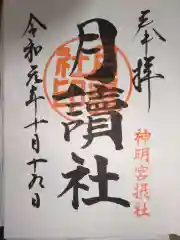 奉拝
月讀社
神明宮摂社
令和元年十月十九日